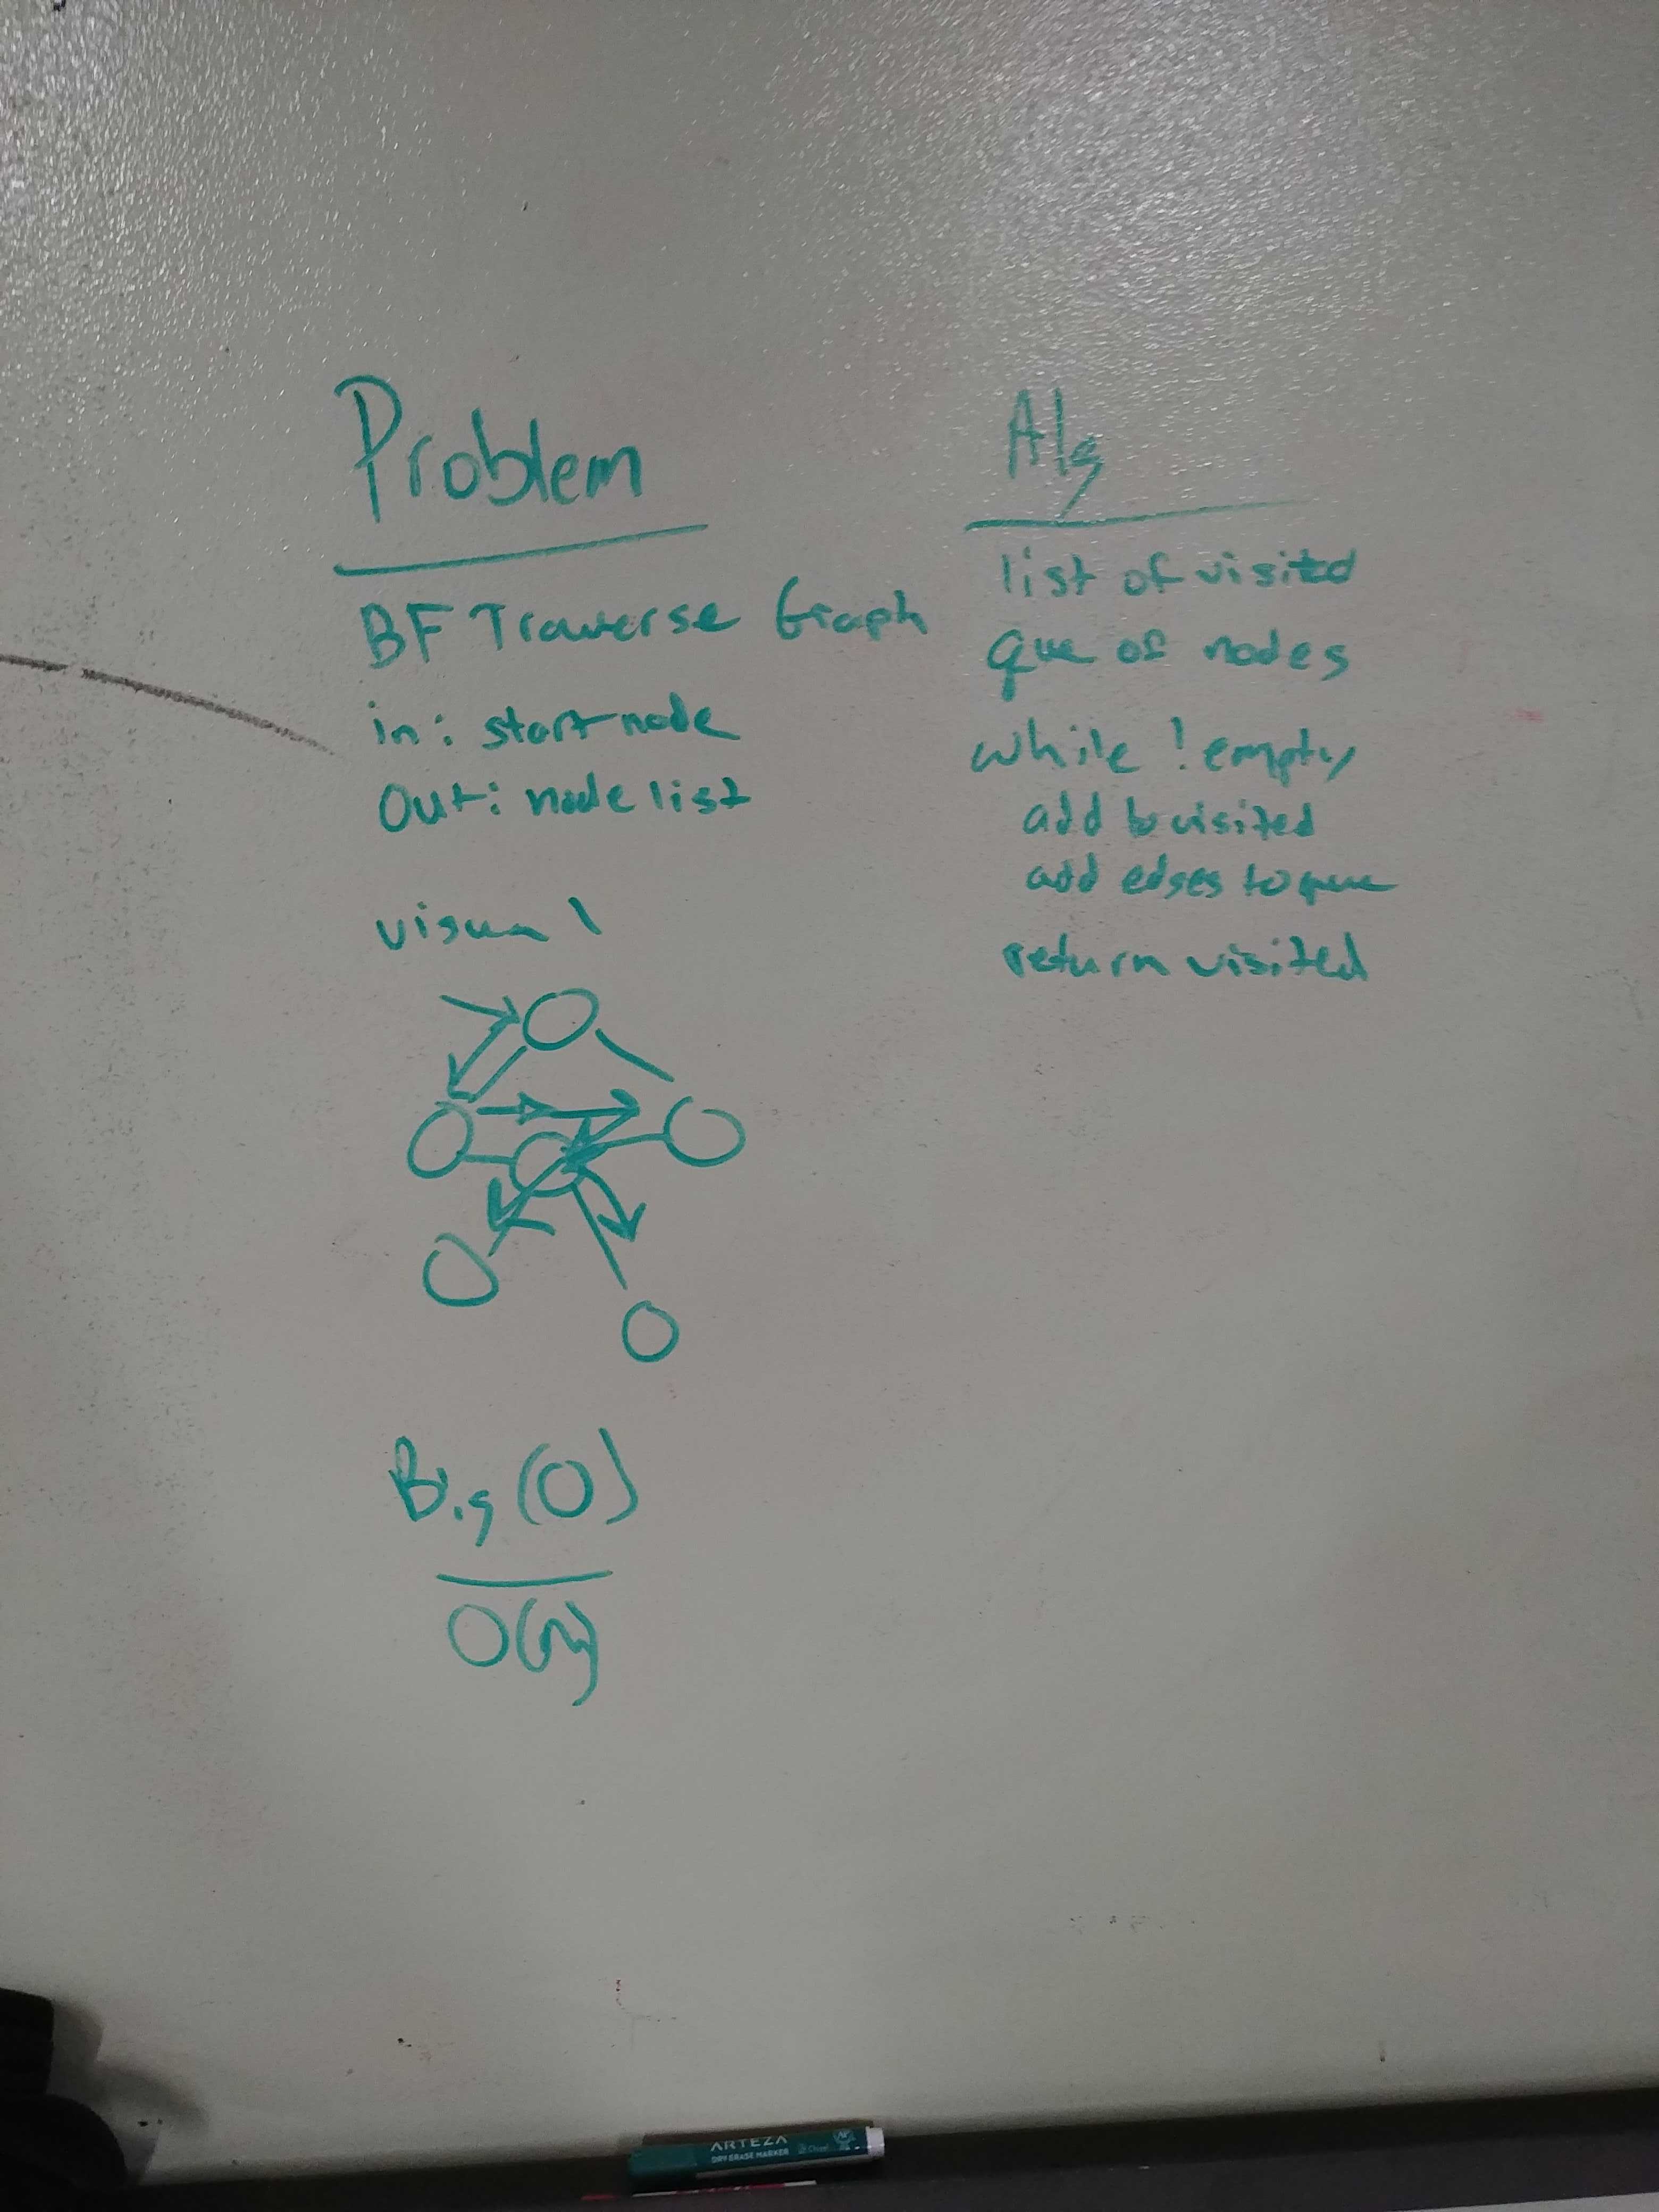 Problem
BF Traverse Graph
in: start node
Out: node list
visual
Big (O)
O(n)
Alg
list of visited
que of nodes
while !empty
add to visited
add edges to que
return visited
ARTEZA
DRY ERASE MARKER